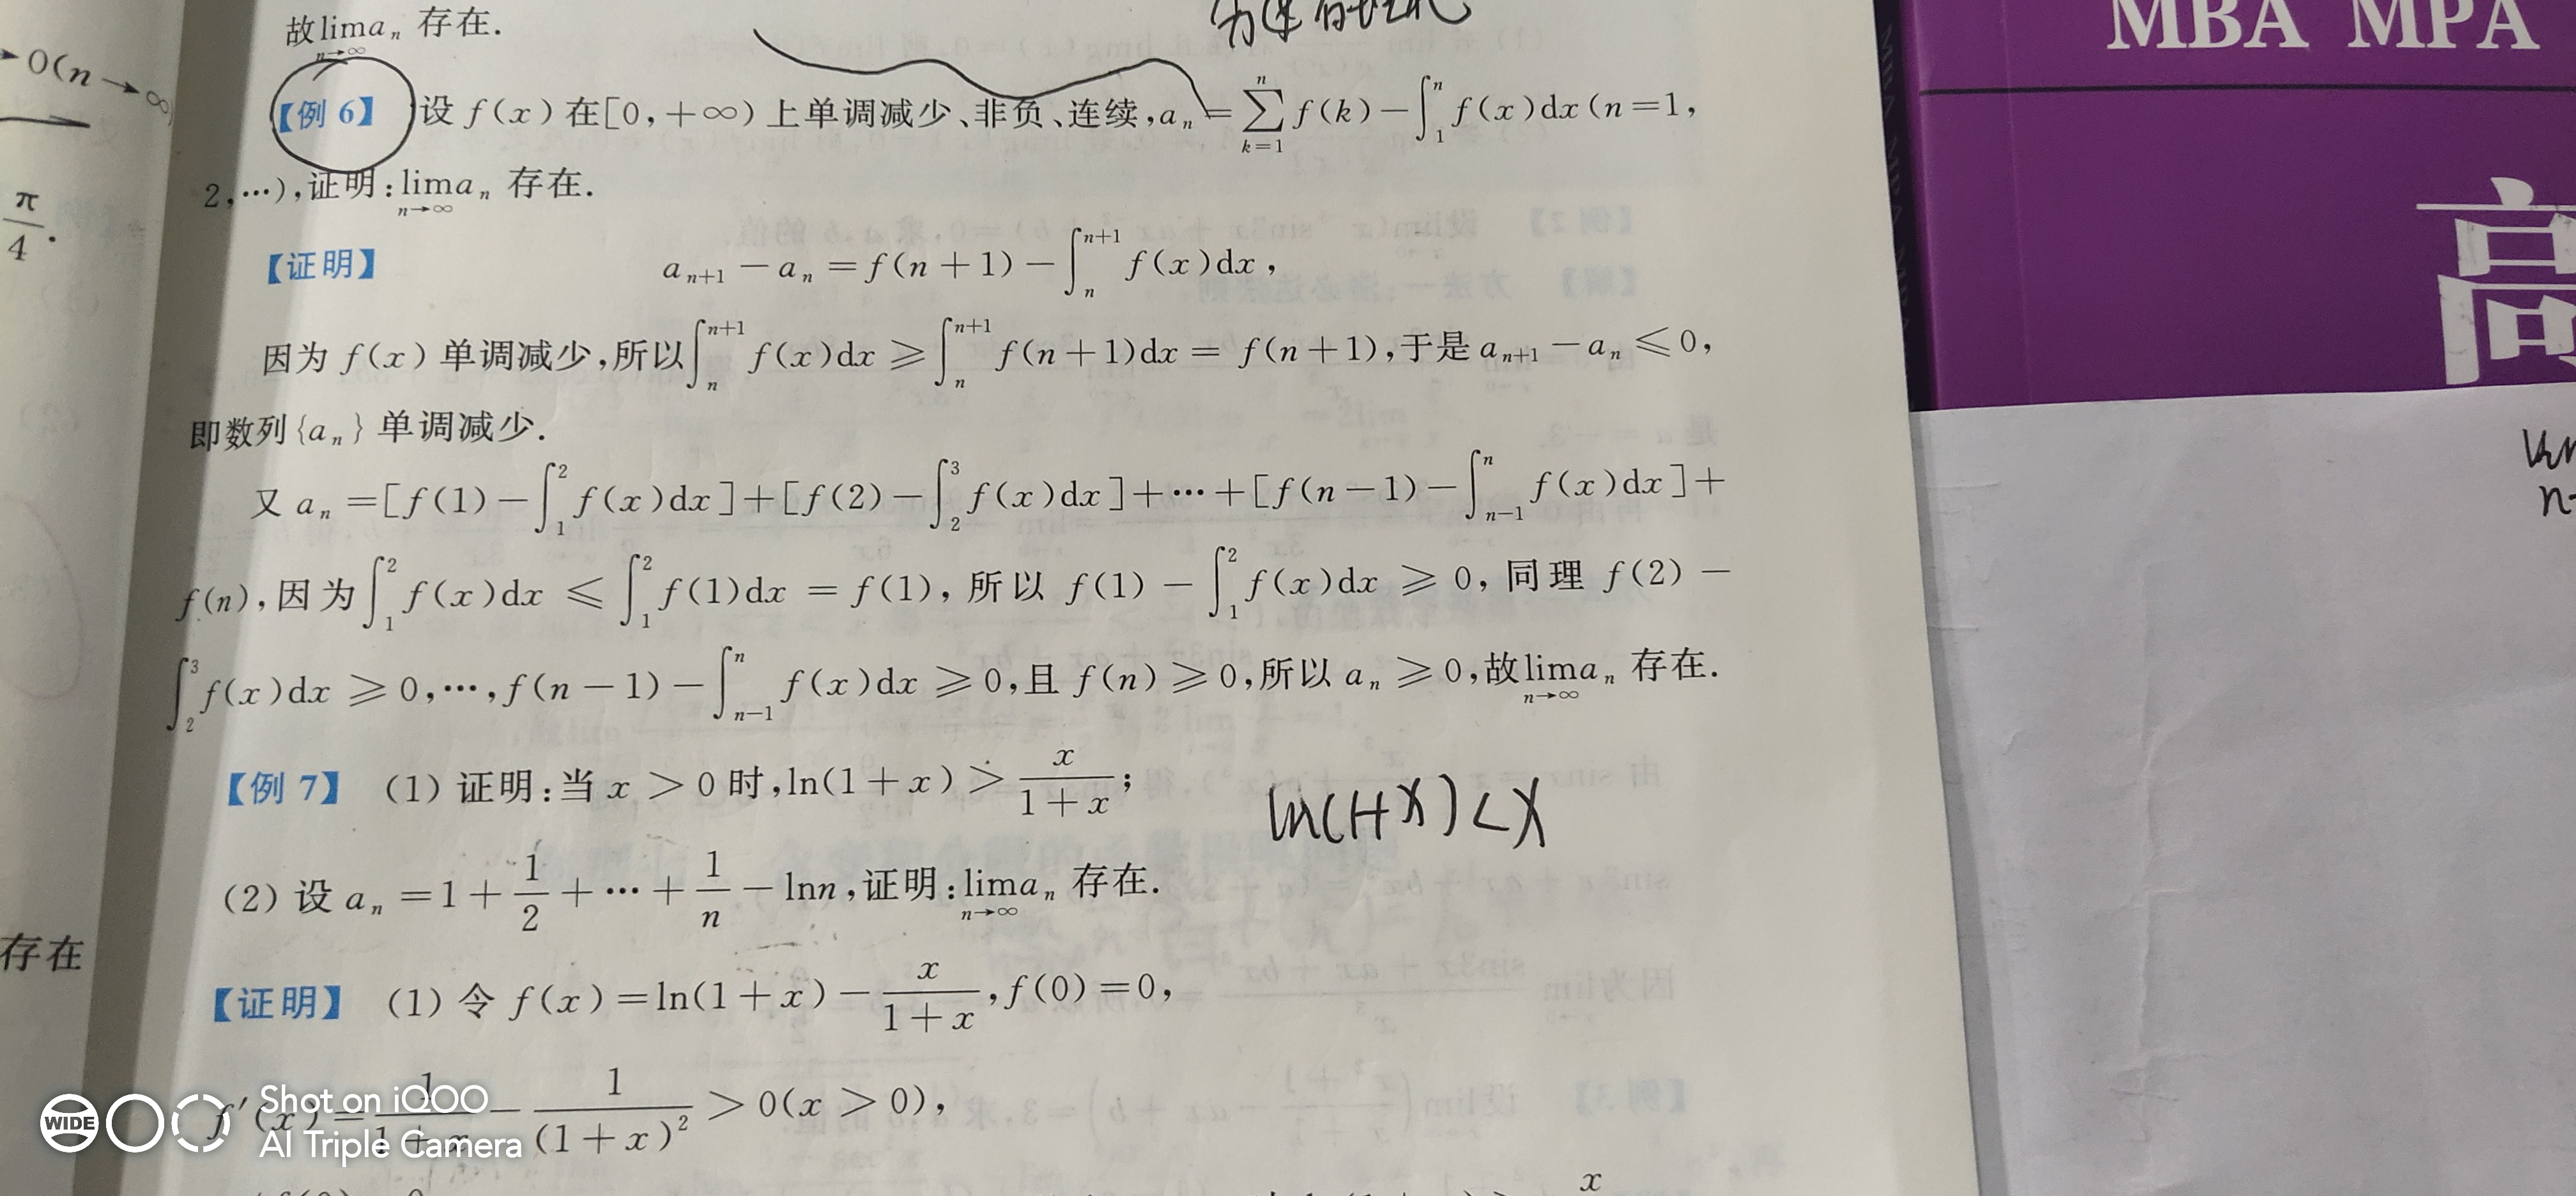 故lim aₙ 存在.
n→∞
→0(n→∞)
π/4.
存在
【例 6】 设 f(x) 在[0,+∞) 上单调减少、非负、连续,aₙ=∑_{k=1}^{n} f(k)-∫_{1}^{n} f(x)dx(n=1,
2,…),证明:lim_{n→∞} aₙ 存在.
【证明】 aₙ₊₁-aₙ=f(n+1)-∫_{n}^{n+1} f(x)dx,
因为 f(x) 单调减少,所以∫_{n}^{n+1} f(x)dx ≥ ∫_{n}^{n+1} f(n+1)dx = f(n+1),于是 aₙ₊₁-aₙ ≤ 0,
即数列{aₙ} 单调减少.
又 aₙ=[f(1)-∫_{1}^{2} f(x)dx]+[f(2)-∫_{2}^{3} f(x)dx]+…+[f(n-1)-∫_{n-1}^{n} f(x)dx]+
f(n),因为∫_{1}^{2} f(x)dx ≤ ∫_{1}^{2} f(1)dx = f(1),所以 f(1)-∫_{1}^{2} f(x)dx ≥ 0,同理 f(2)-
∫_{2}^{3} f(x)dx ≥ 0,…,f(n-1)-∫_{n-1}^{n} f(x)dx ≥ 0,且 f(n) ≥ 0,所以 aₙ ≥ 0,故lim_{n→∞} aₙ 存在.
【例 7】 (1) 证明:当 x > 0 时,ln(1+x) > x/(1+x);
ln(1+x)<x
(2) 设 aₙ=1+1/2+…+1/n-lnn,证明:lim_{n→∞} aₙ 存在.
【证明】 (1) 令 f(x)=ln(1+x)-x/(1+x),f(0)=0,
f′(x)=1/(1+x)-1/(1+x)² > 0(x > 0),
MBA MPA
高
WIDE
Shot on iQOO
AI Triple Camera